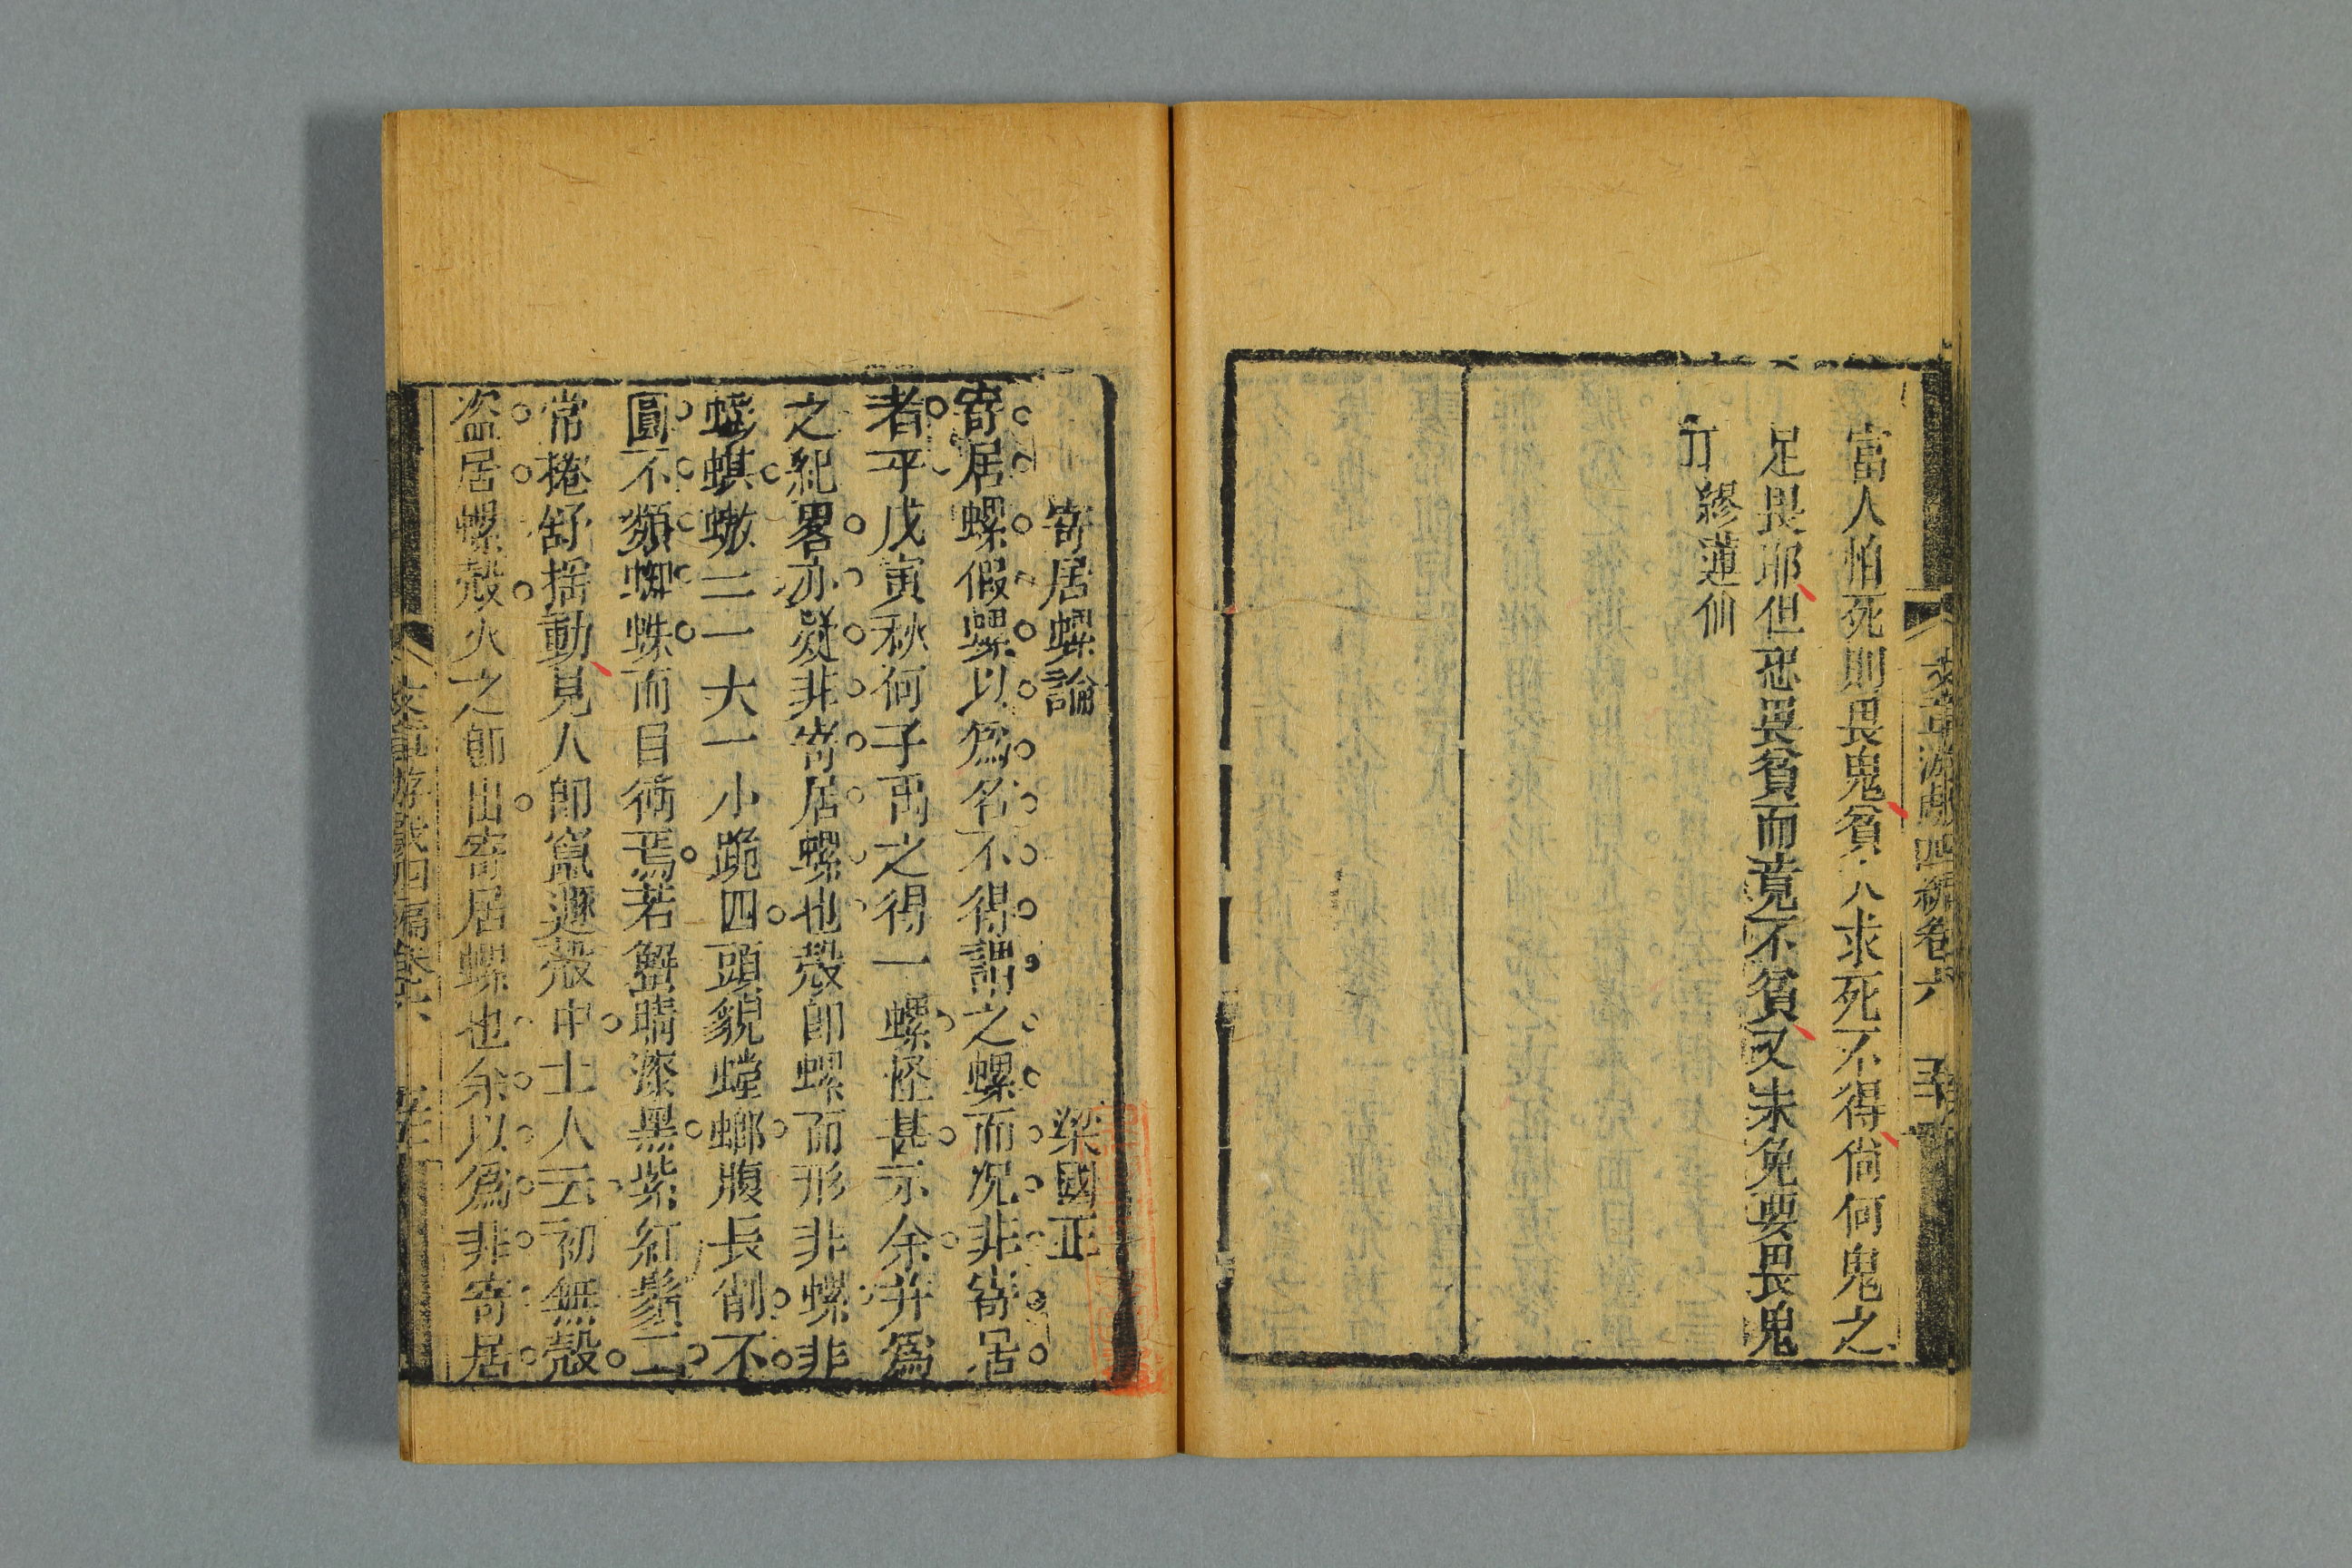 文章游戲四編卷六
富人怕死則畏鬼貧人求死不得倘何鬼之
足畏耶但恐畏貧而竟不貧又未免要畏鬼
耳 繆蓮仙
寄居螺論 梁國正
寄居螺假螺以爲名不得謂之螺而况非寄居
者乎戊寅秋何子禹之得一螺怪甚示余并爲
之紀畧亦疑非寄居螺也殼卽螺而形非螺非
蟛蜞螯二一大一小跪四頭貌螳螂腹長削不
圓不類蜘蛛而目衕焉若蟹睛漆黑紫紅鬚二
常捲舒揺動見人卽竄遯殼中土人云初無殼
盗居螺殼火之卽出寄居螺也余以爲非寄居
文章游戲四編卷六